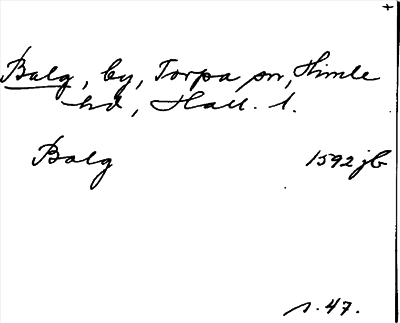 Balg, by, Torpa sn, Himle
hd, Hall. l.
Balg 1592 jb
s. 47.